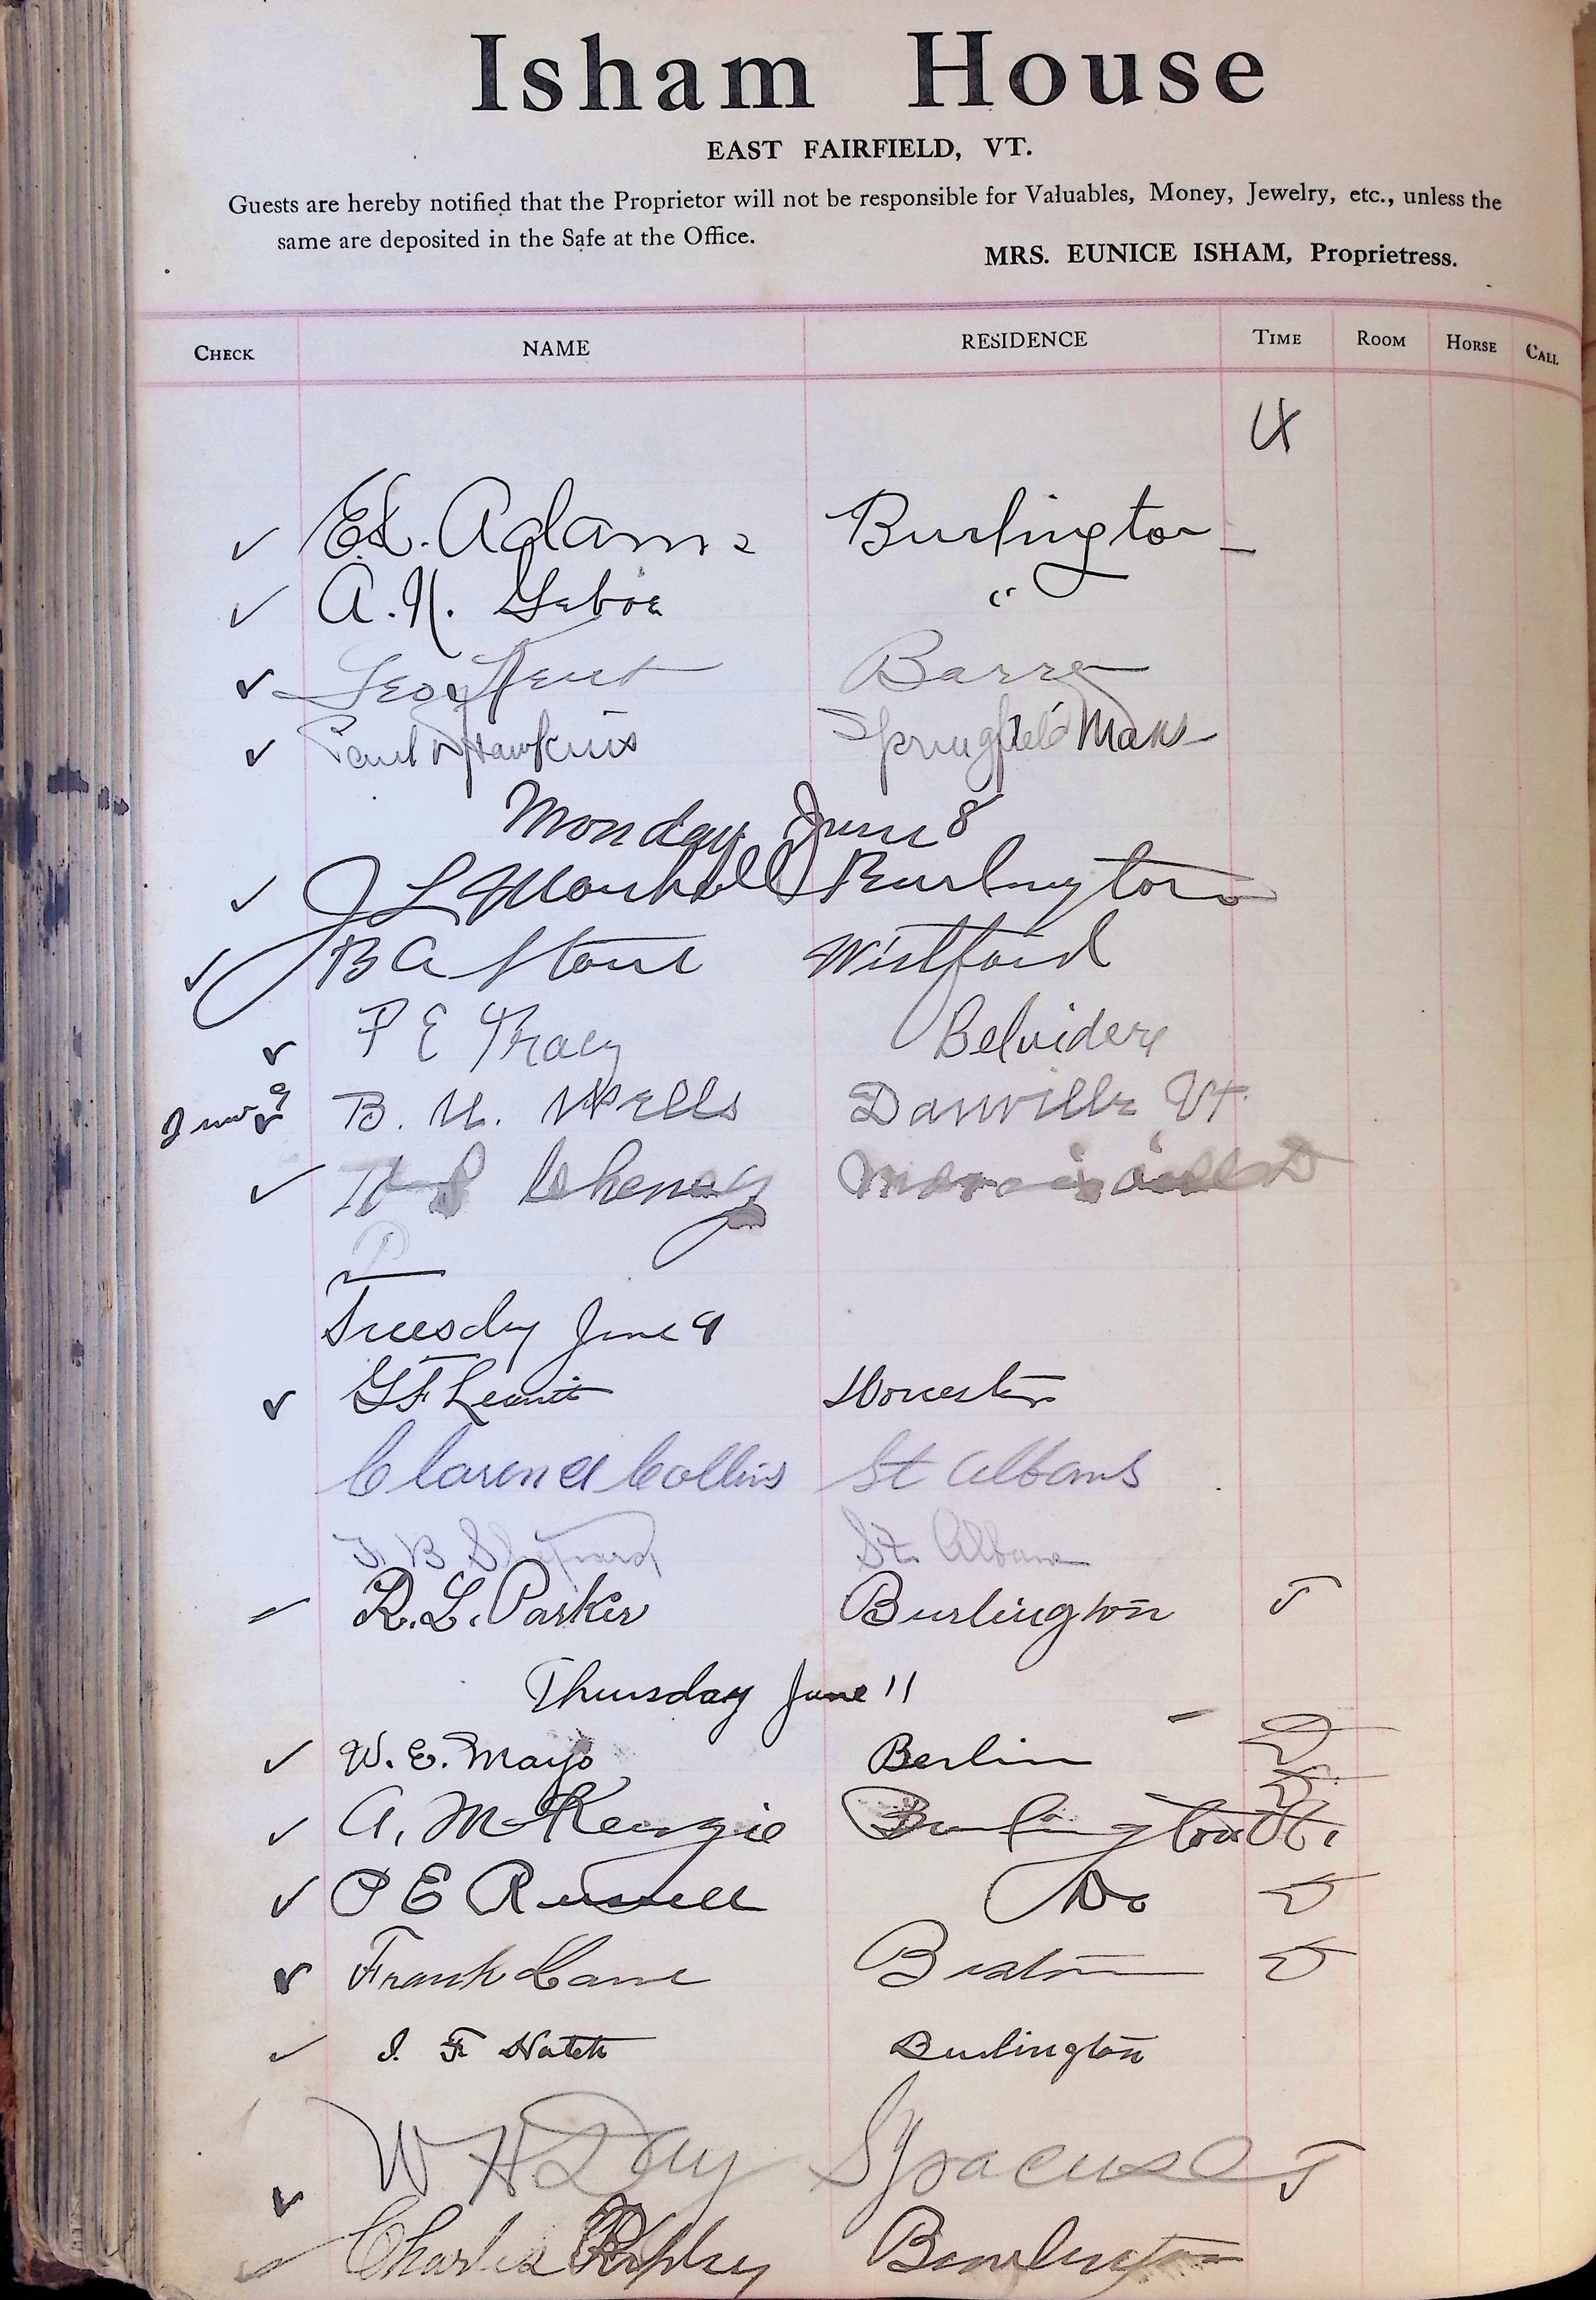 Isham House
EAST FAIRFIELD, VT.
Guests are hereby notified that the Proprietor will not be responsible for Valuables, Money, Jewelry, etc., unless the
same are deposited in the Safe at the Office.
MRS. EUNICE ISHAM, Proprietress.
CHECK NAME RESIDENCE TIME ROOM HORSE CALL
4
Ed. Adams Burlington
A. N. "
Geo Kent Barre
Paul Hawkins Springfield Mass
Monday June 8
J L Burlington
B A Stone Westford
F E Tracy Belvidere
B. M. Wells Danville Vt.
Cheney
Tuesday June 9
G F Worcester
Clarence Collins St Albans
F. B. St. Albans
R. L. Parker Burlington
Thursday June 11
W. E. Mayo Berlin
A. McKenzie Burlington Vt.
P E Russell Do
Frank Lane Boston
I. F. Hatch Burlington
W H Day Syracuse
Charles Burlington